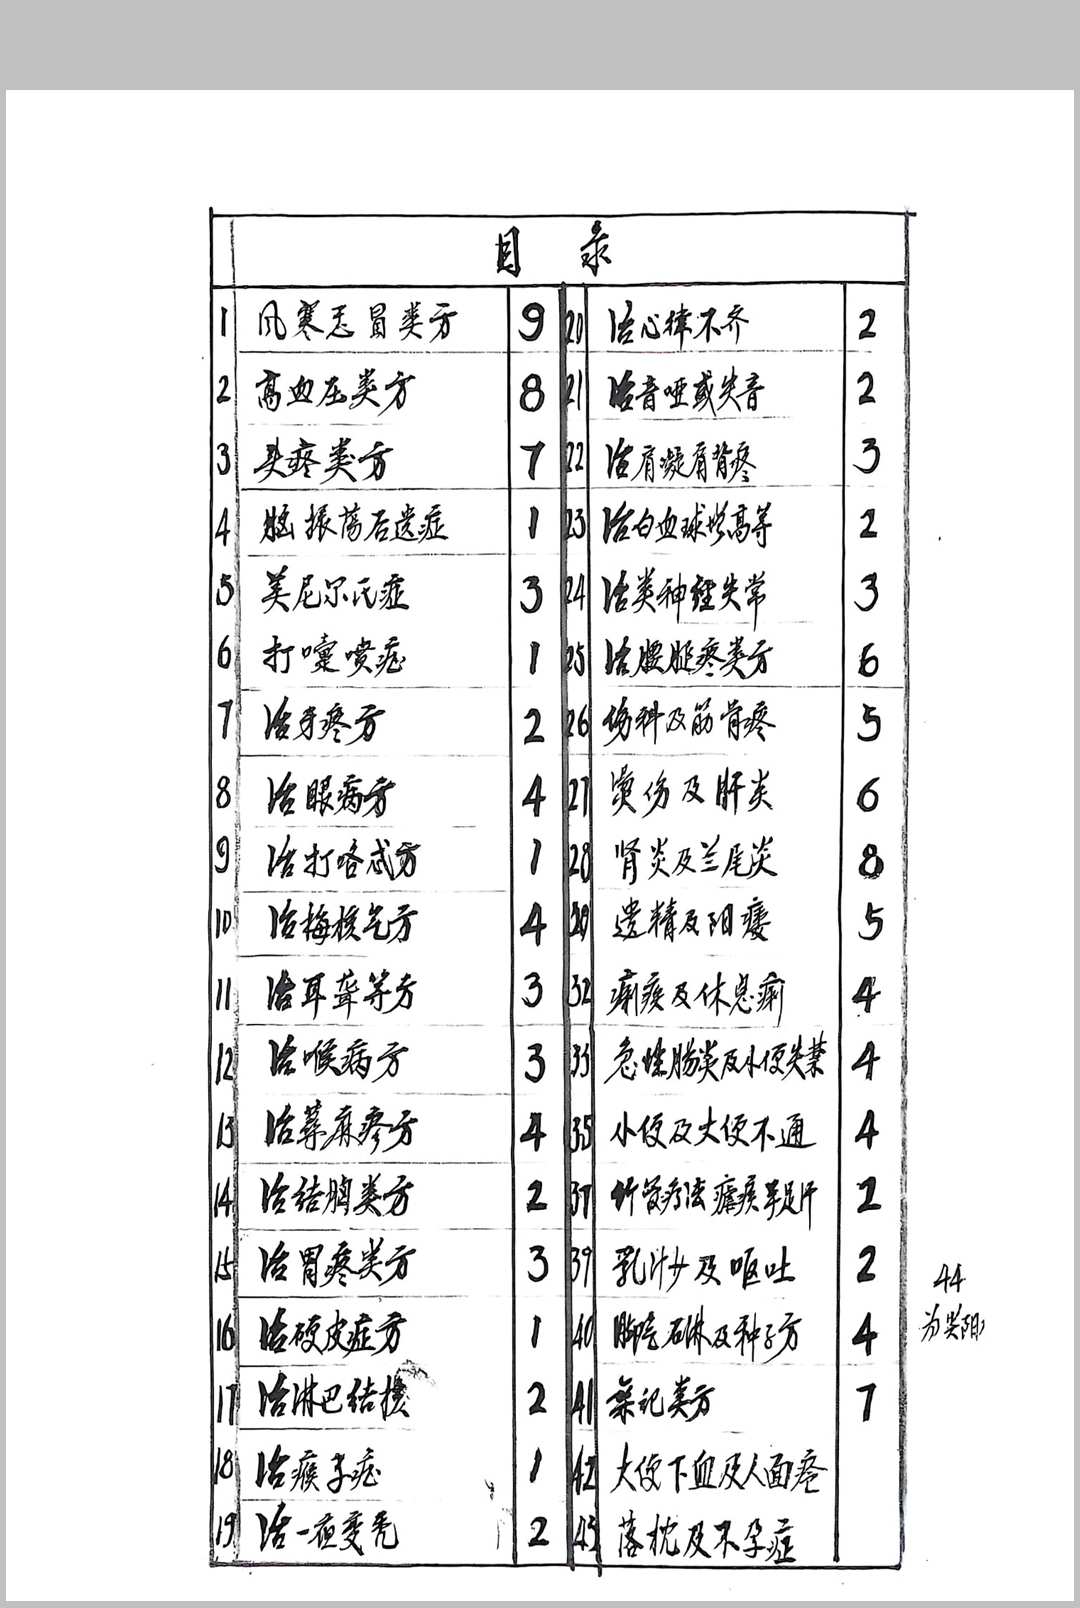 目 录
1 风寒感冒类方 9
2 高血压类方 8
3 头疼类方 7
4 脑振荡后遗症 1
5 美尼尔氏症 3
6 打嚏喷症 1
7 治牙疼方 2
8 治眼病方 4
9 治打咯忒方 1
10 治梅核气方 4
11 治耳聋等方 3
12 治喉病方 3
13 治荨麻疹方 4
14 治结胸类方 2
15 治胃疼类方 3
16 治硬皮症方 1
17 治淋巴结核 2
18 治瘊子症 1
19 治一夜变秃 2
20 治心律不齐 2
21 治音哑或失音 2
22 治肩凝肩背疼 3
23 治白血球增高等 2
24 治类神经失常 3
25 治腰腿疼类方 6
26 伤科及筋骨疼 5
27 烫伤及肝炎 6
28 肾炎及兰尾炎 8
遗精及阳痿 5
32 痢疾及休息痢 4
33 急性肠炎及小便失禁 4
35 小便及大便不通 4
37 竹管疗法瘧疾手足汗 2
39 乳汁少及呕吐 2
40 脚气石淋及种子方 4
41 杂记类方 7
42 大便下血及人面疮
43 落枕及不孕症
44
为尖阳